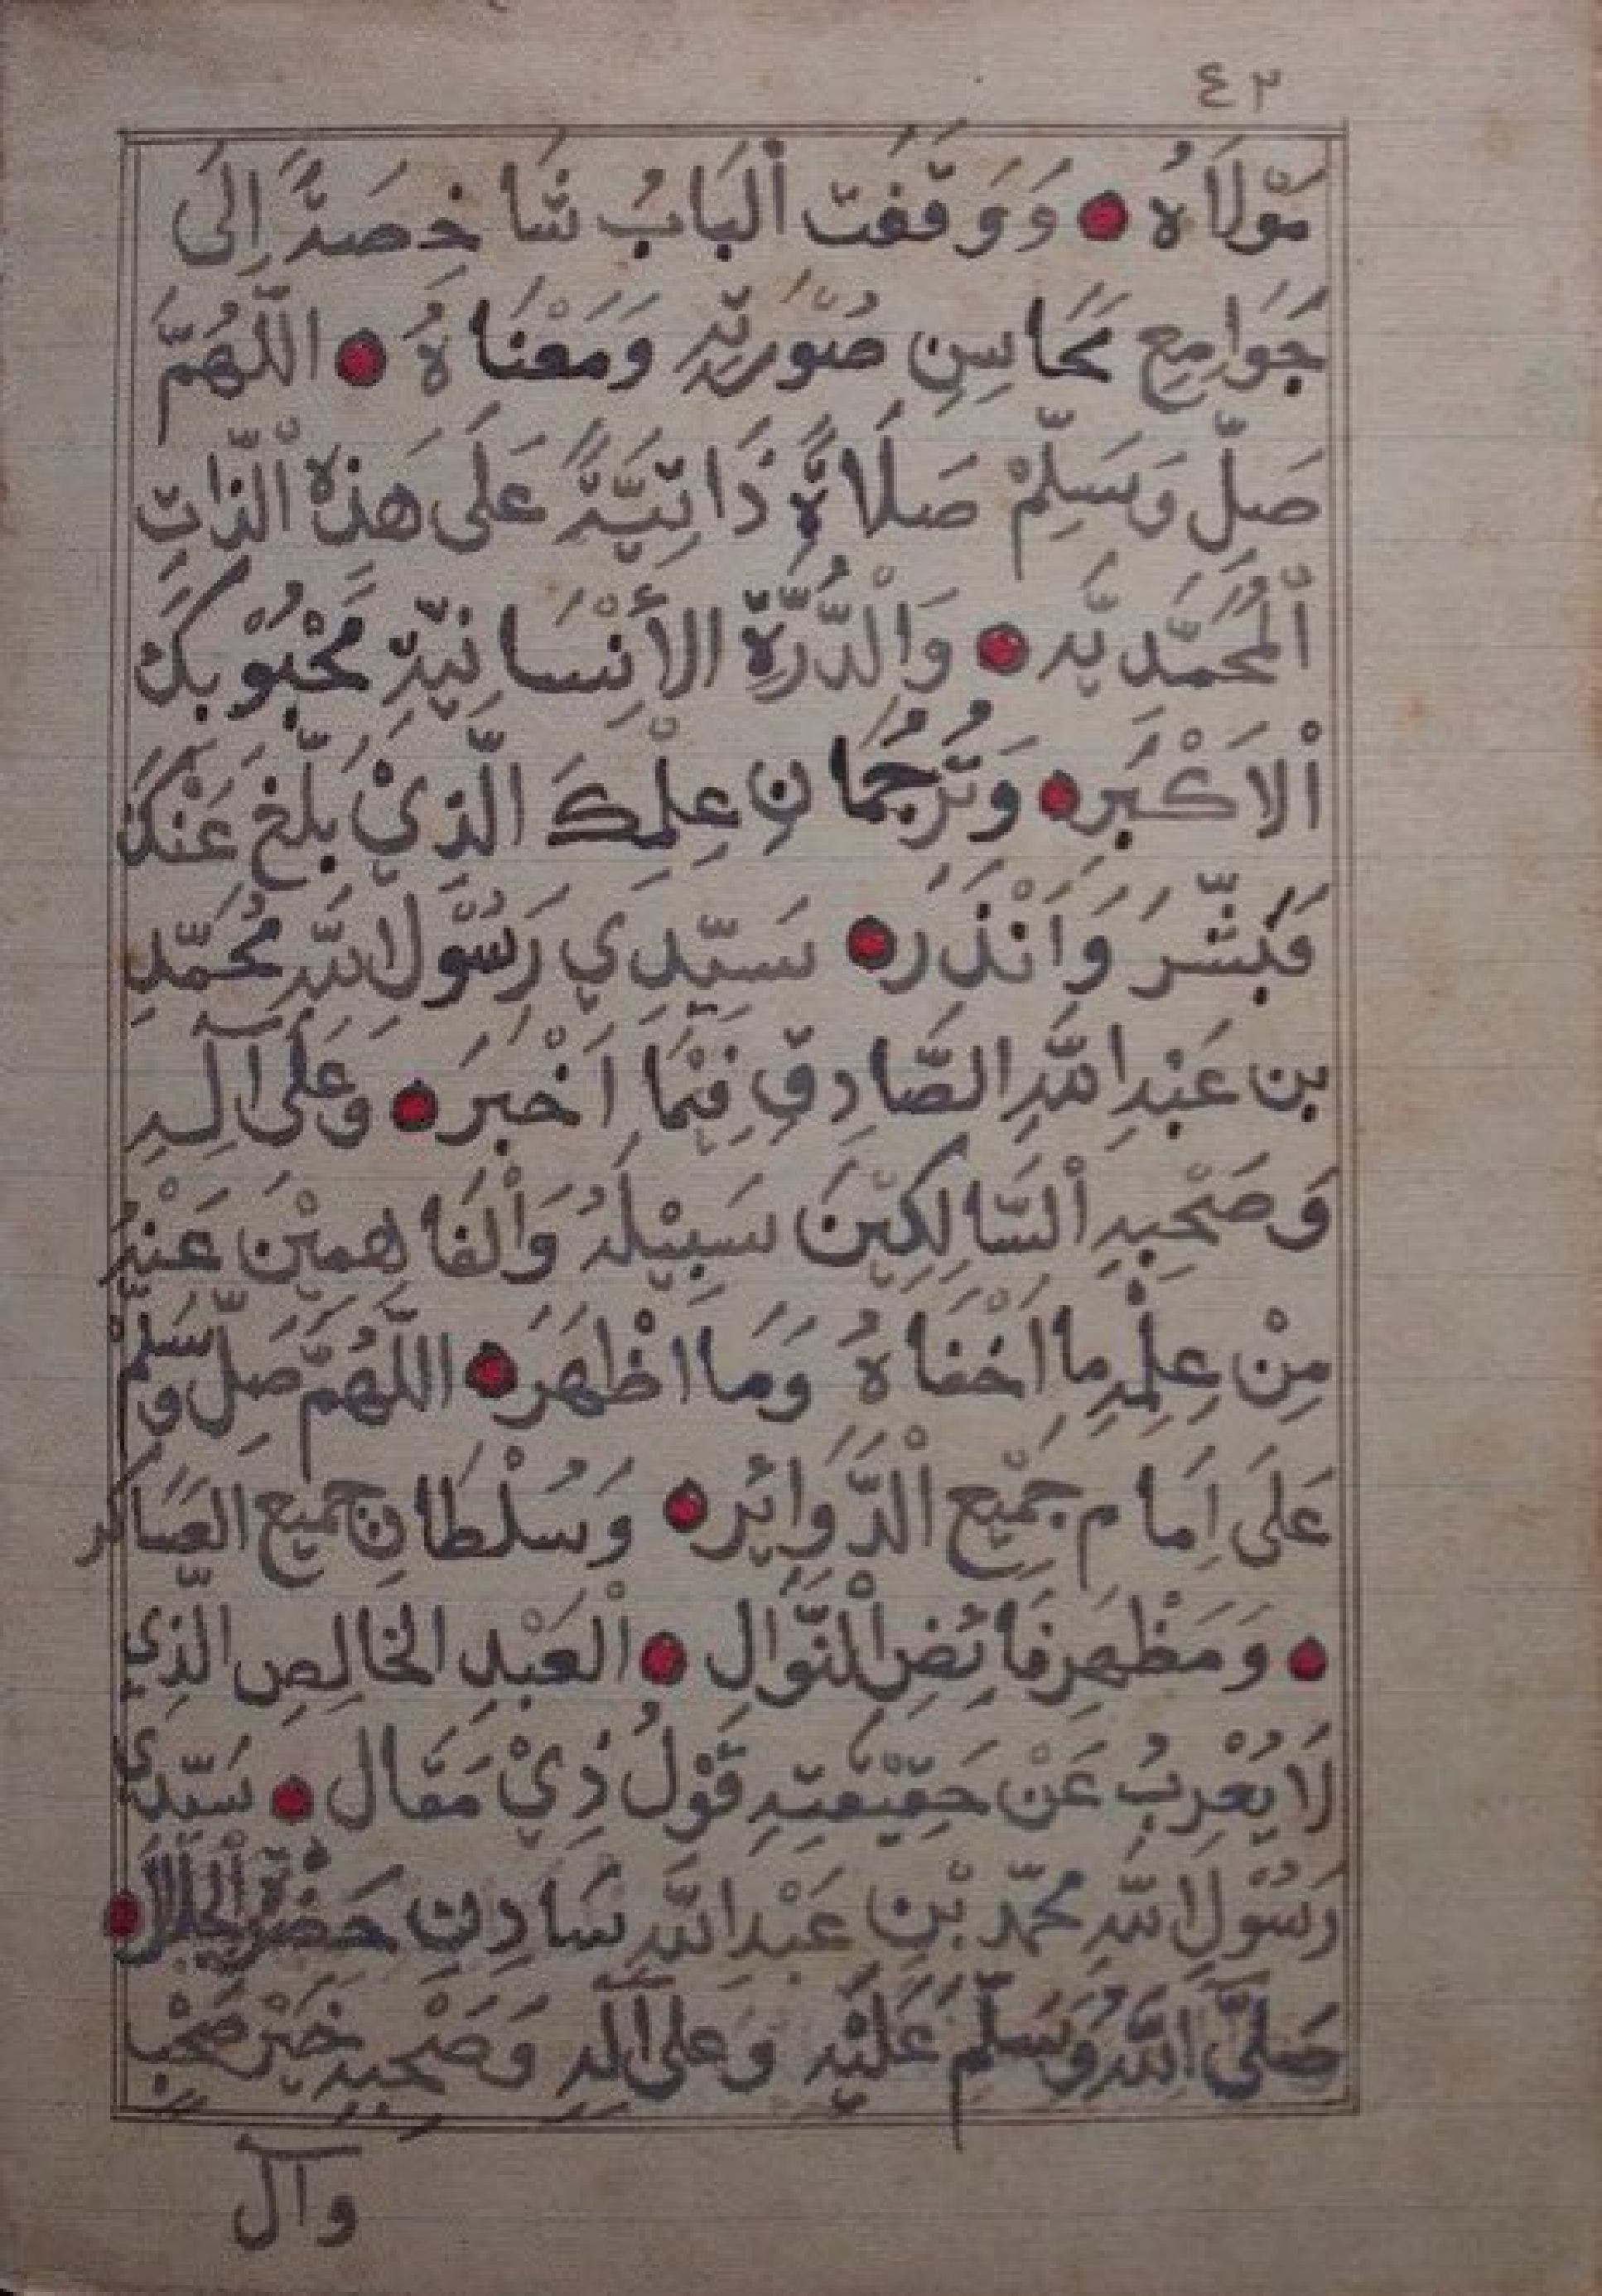 ٤٢
مَوْلَاهُ ● وَوَقَفَت اْلبَابُ شَاخِصَةً إِلَى
جَوَامِعِ مَحَاسِنِ صُوْرَتِهِ وَمَعْنَاهُ ● اللّٰهُمَّ
صَلِّ وَسَلِّمْ صَلَاةً ذَاتِيَّةً عَلَى هَذِهِ اْلذَّاتِ
اْلمُحَمَّدِيَّه ● وَاْلدُّرَّةِ الأِنْسَانِيَّةِ مَحْبُوْبِكَ
اْلاَكْبَرِ ● وَتُرْجُمَانِ عِلْمِكَ الَّذِيْ بَلَّغَ عَنْكَ
فَبَشَّرَ وَاَنْذَرَ ● سَيِّدِي رَسُوْلِ اللّٰهِ مُحَمَّدِ
بن عَبْدِ اللّٰهِ الصَّادِقِ فِيْمَا اَخْبَرَ ● وَعَلَى آلِهِ
وَصَحْبِهِ اْلسَّالِكِيْنَ سَبِيْلَهُ وَاْلفَاهِمِيْنَ عَنْهُ
مِنْ عِلْمِهِ مااَخْفَاهُ وَمَا اَظْهَرَ ● اللّٰهُمَّ صَلِّ وسَلِّمْ
عَلَى اِمَامِ جَمِيْعِ اْلدَّوَائِر ● وَسُلْطَانِ جَمِيعِ العَسَاكر
● وَمَظْهَرِ فَائِضِ اْلنَّوَال ● اْلعَبْدِ الخَالِصِ الَّذِي
لَا يُعْرِبُ عَنْ حَقِيْقَتِهِ قَوْلُ ذِيْ مَقَال ● سَيِّدِي
رَسُوْلِ اللّٰهِ محمّد بْنِ عَبْدِ اللّٰهِ سَادِنِ حَضْرَةِ اْلجَلَال ●
صَلَّى اللّٰهُ وَسَلَّمَ عَلَيْهِ وَعَلى آلِهِ وَصَحْبِهِ خَيْرَ صَحْبٍ
وآل